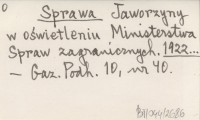 Sprawa Jaworzyny
w oświetleniu Ministerstwa
Spraw zagranicznych. 1922...
– Gaz. Podh. 10, nr 40.